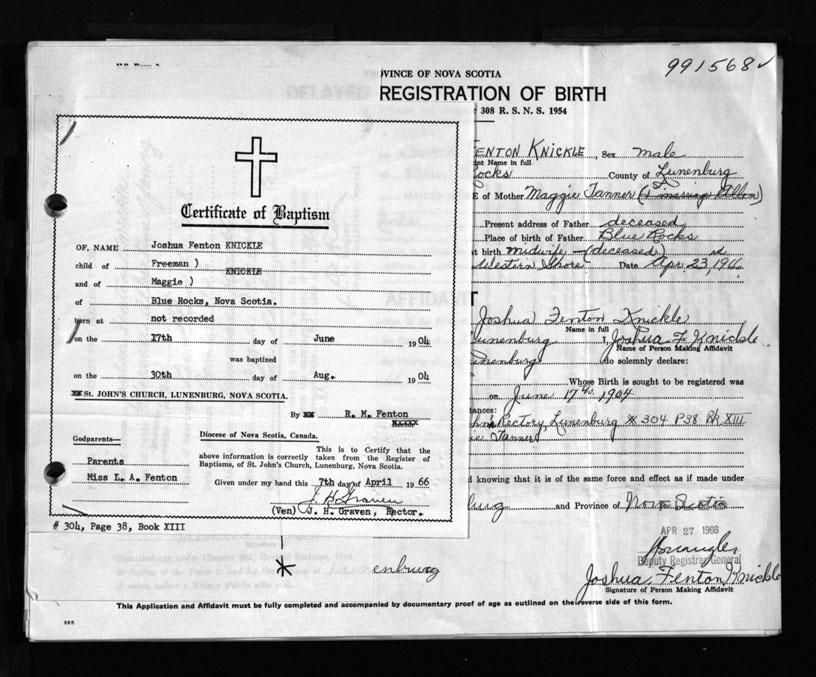 991568
OVINCE OF NOVA SCOTIA
REGISTRATION OF BIRTH
308 R. S. N. S. 1954
FENTON KNICKLE, Sex male
int Name in full
Rocks County of Lunenburg
E of Mother Maggie Tanner
Present address of Father deceased
Place of birth of Father Blue Rocks
t birth midwife - (deceased)
Western Shore Date Apr. 23, 1966
Joshua Fenton Knickle
Name in full
Lunenburg I, Joshua F Knickle
Name of Person Making Affidavit
unenburg do solemnly declare:
Whose Birth is sought to be registered was
on June 17th 1904
tances:
hn's Rectory, Lunenburg # 304 P38 Bk XIII
ie Tanner
knowing that it is of the same force and effect as if made under
urg and Province of Nova Scotia
APR 27 1966
Deputy Registrar General
enburg
Joshua Fenton Knickle
Signature of Person Making Affidavit
This Application and Affidavit must be fully completed and accompanied by documentary proof of age as outlined on the reverse side of this form.
Certificate of Baptism
OF, NAME Joshua Fenton KNICKLE
child of Freeman )
KNICKLE
and of Maggie )
of Blue Rocks, Nova Scotia.
born at not recorded
on the 17th day of June 1904
was baptized
on the 30th day of Aug. 1904
St. JOHN'S CHURCH, LUNENBURG, NOVA SCOTIA.
By R. M. Fenton
Godparents—
Parents
Miss L. A. Fenton
Diocese of Nova Scotia, Canada.
This is to Certify that the
above information is correctly taken from the Register of
Baptisms, of St. John's Church, Lunenburg, Nova Scotia.
Given under my hand this 7th day of April 1966
J. H. Graven
(Ven) J. H. Graven, Rector.
# 304, Page 38, Book XIII